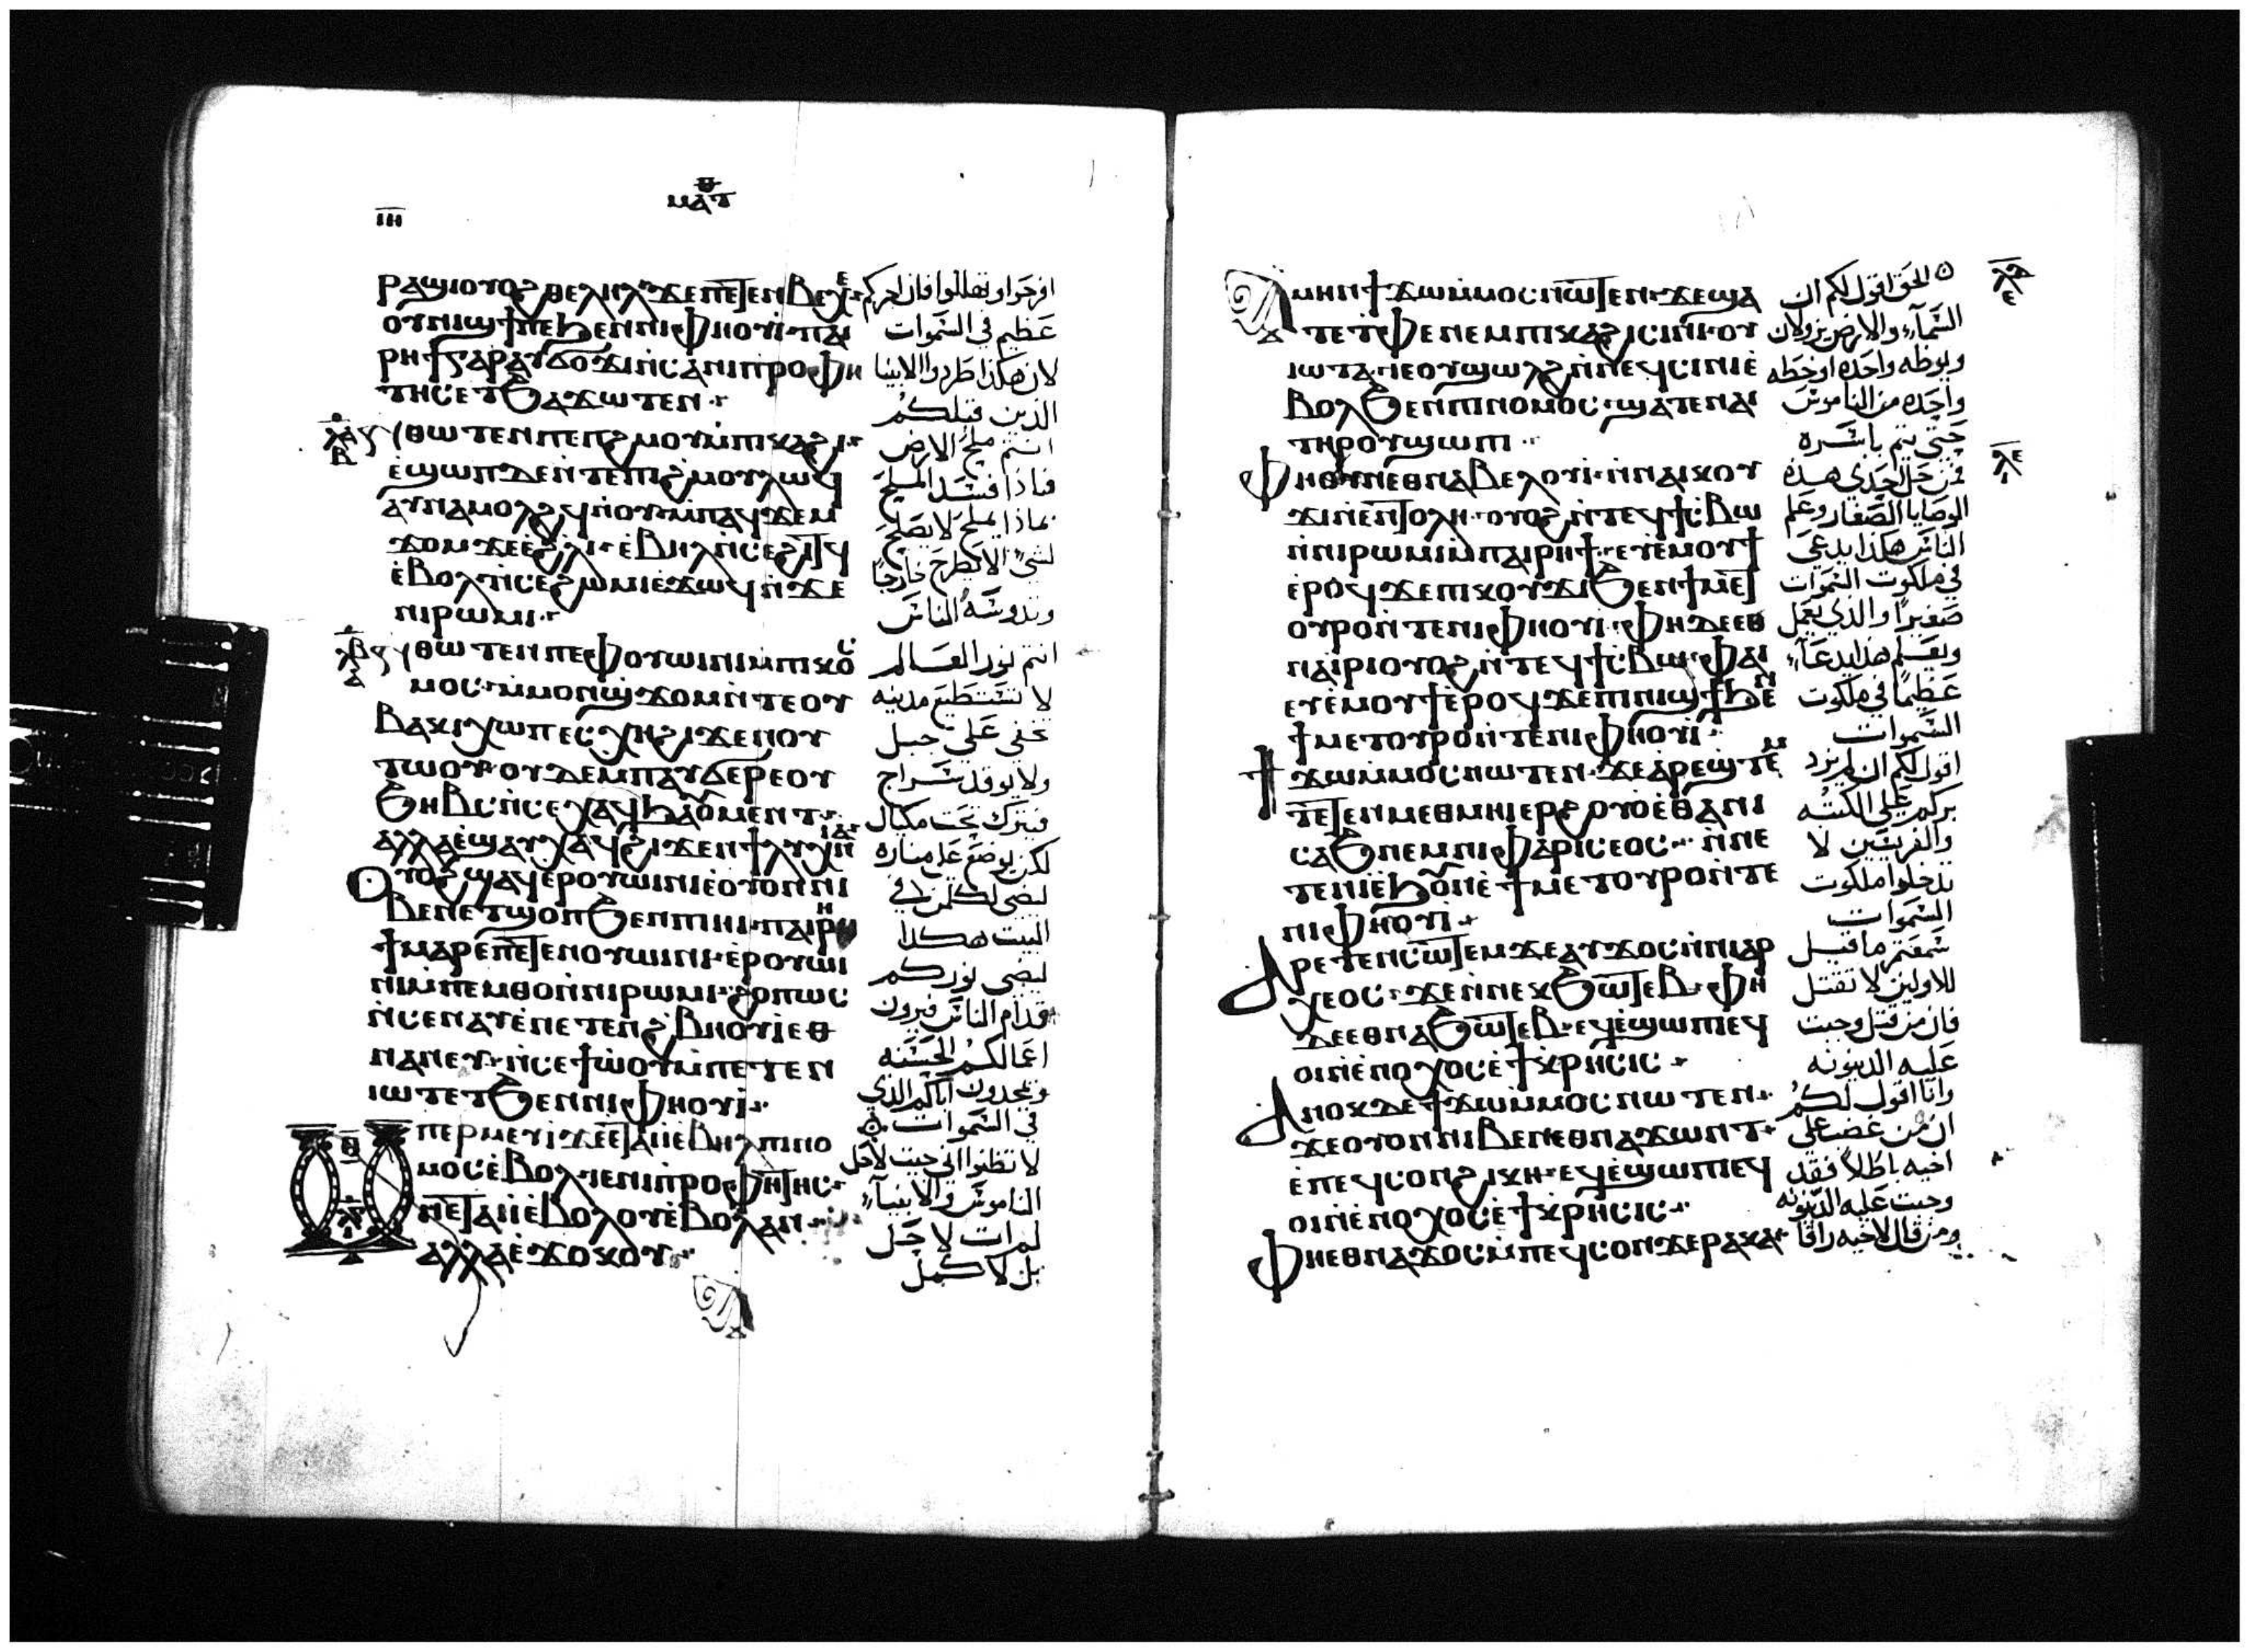 ⲓⲏ
ⲙⲁⲧ
ⲣⲁϣⲓⲟⲩⲟϩⲑⲉⲗⲏⲗϫⲉⲡⲉⲧⲉⲛⲃⲉⲭⲉ
ⲟⲩⲛⲓϣϯⲡⲉϧⲉⲛⲛⲓⲫⲏⲟⲩⲓ·ⲡⲁⲓ
ⲣⲏϯⲅⲁⲣⲁⲩϭⲟϫⲓⲛⲥⲁⲛⲓⲡⲣⲟⲫⲏ
ⲧⲏⲥⲉⲧϧⲁϫⲱⲧⲉⲛ·
ⲗⲁ
ⲃ
ⲛⲑⲱⲧⲉⲛⲡⲉⲡϩⲙⲟⲩⲙ̀ⲡⲓⲕⲁϩⲓ·
ⲉ̀ϣⲱⲡⲇⲉⲛ̀ⲧⲉⲡⲓϩⲙⲟⲩⲗⲱϥ
ⲁⲩⲛⲁⲙⲟⲗϩϥⲛ̀ⲟⲩ·ⲙ̀ⲡⲁϥϫⲉⲙ
ϫⲟⲙϫⲉⲉ̀ϩⲗⲓ·ⲉ̀ⲃⲏⲗⲛ̀ⲥⲉϩⲓⲧϥ
ⲉ̀ⲃⲟⲗⲛ̀ⲥⲉϩⲱⲙⲓⲉ̀ϫⲱϥⲛ̀ϫⲉ
ⲛⲓⲣⲱⲙⲓ·
ⲗⲃ
ⲇ
ⲛⲑⲱⲧⲉⲛⲡⲉⲫⲟⲩⲱⲓⲛⲓⲙ̀ⲡⲓⲕⲟⲥ
ⲙⲟⲥ·ⲙ̀ⲙⲟⲛϣϫⲟⲙⲛ̀ⲧⲉⲟⲩ
ⲃⲁⲕⲓⲭⲱⲡⲉⲥⲭⲏϩⲓϫⲉⲛⲟⲩ
ⲧⲱⲟⲩ·ⲟⲩⲇⲉⲙⲡⲁⲩϭⲉⲣⲉⲟⲩ
ϧⲏⲃⲥⲛ̀ⲥⲉⲭⲁϥϧⲁⲟ̀ⲙⲉⲛⲧ·
ⲁⲗⲗⲁⲉ̀ϣⲁⲩⲭⲁϥϩⲓϫⲉⲛϯⲗⲩⲭⲛⲓⲁ
ⲟⲩⲟϩϣⲁϥⲉⲣⲟⲩⲱⲓⲛⲓⲉ̀ⲟⲩⲟⲛⲛⲓ
ⲃⲉⲛⲉⲧϣⲟⲡϧⲉⲛⲡⲓⲏⲓ·ⲡⲁⲓⲣⲏ
ϯⲙⲁⲣⲉⲡⲉⲧⲉⲛⲟⲩⲱⲓⲛⲓ·ⲉ̀ⲣⲟⲩⲱⲓ
ⲛⲓⲙ̀ⲡⲉⲙⲑⲟⲛ̀ⲛⲓⲣⲱⲙⲓ·ϩⲟⲡⲱⲥ
ⲛ̀ⲥⲉⲛⲁⲩⲉ̀ⲛⲉⲧⲉⲛϩⲃⲏⲟⲩⲓⲉⲑ
ⲛⲁⲛⲉⲩ·ⲛ̀ⲥⲉϯⲱⲟⲩⲙ̀ⲡⲉⲧⲉⲛ
ⲓⲱⲧⲉⲧϧⲉⲛⲛⲓⲫⲏⲟⲩⲓ·
ⲑ
ⲗⲅ
ⲓ
ⲙⲡⲉⲣⲙⲉⲩⲓϫⲉⲉⲧⲁⲓⲓ̀ⲉ̀ⲃⲏⲗⲡⲓⲛⲟ
ⲙⲟⲥⲉ̀ⲃⲟⲗⲓⲉⲛⲓⲡⲣⲟⲫⲏⲧⲏⲥ·
ⲛⲉⲧⲁⲓⲓ̀ⲉ̀ⲃⲟⲗⲟⲩⲉ̀ⲃⲟⲗⲁⲛ·
ⲁⲗⲗⲁⲉ̀ϫⲟⲕⲟⲩ·
افرحوا وتهللوا فان اجركم
عظيم في السموات
لان هكذا طردوا الانبيا
الذين قبلكم
انتم ملح الارض
فاذا فسد الملح
بماذا يملح لا يصلح
لشي الا يطرح خارجا
وتدوسه الناس
انتم نور العالم
لا تستطيع مدينه
تخفي علي جبل
ولا يوقد سراج
فيترك تحت مكيال
لكن يوضع علي مناره
ليضي لكل من في
البيت هكذا
ليضي نوركم
قدام الناس فيرون
اعمالكم الحسنه
ويمجدون اباكم الذي
في السموات
لا تظنوا اني جيت لاحل
الناموس والانبيآء
لم ات لا حل
بل لا كمل
ⲁⲙⲏⲛϯϫⲱⲙ̀ⲙⲟⲥⲛⲱⲧⲉⲛ·ϫⲉϣⲁ
ⲧⲉⲧⲫⲉⲛⲉⲙⲡⲓⲕⲁϩⲓⲥⲓⲛⲓ·ⲟⲩ
ⲓⲱⲧⲁ·ⲓⲉⲟⲩϣⲱⲗϩⲛ̀ⲛⲉⲩⲥⲓⲛⲓⲉ̀
ⲃⲟⲗϧⲉⲛⲡⲓⲛⲟⲙⲟⲥ·ϣⲁⲧⲉⲛⲁⲓ
ⲧⲏⲣⲟⲩϣⲱⲡⲓ·
ⲫⲏⲟⲩⲛⲉⲑⲛⲁⲃⲉⲗⲟⲩⲓ·ⲛ̀ⲛⲁⲓⲕⲟⲩ
ϫⲓⲛⲉⲛⲧⲟⲗⲏ·ⲟⲩⲟϩⲛ̀ⲧⲉϥϯⲥⲃⲱ
ⲛ̀ⲛⲓⲣⲱⲙⲓⲙ̀ⲡⲁⲓⲣⲏϯ·ⲉⲩⲉ̀ⲙⲟⲩϯ
ⲉ̀ⲣⲟϥϫⲉⲡⲓⲕⲟⲩϫⲓϧⲉⲛϯⲙⲉⲧ
ⲟⲩⲣⲟⲛ̀ⲧⲉⲛⲓⲫⲏⲟⲩⲓ·ⲫⲏⲇⲉⲉⲑ
ⲛⲁⲓⲣⲓⲟⲩⲟϩⲛ̀ⲧⲉϥϯⲥⲃⲱ·ⲫⲁⲓ
ⲉⲩⲉ̀ⲙⲟⲩϯⲉ̀ⲣⲟϥϫⲉⲡⲓⲛⲓϣϯϧⲉⲛ
ϯⲙⲉⲧⲟⲩⲣⲟⲛ̀ⲧⲉⲛⲓⲫⲏⲟⲩⲓ·
ϯϫⲱⲙ̀ⲙⲟⲥⲛⲱⲧⲉⲛ·ϫⲉⲁⲣⲉϣⲧⲉⲙ
ⲧⲉⲧⲉⲛⲙⲉⲑⲙⲏⲓⲉⲣϩⲟⲩⲟⲉ̀ⲑⲁⲛⲓ
ⲥⲁϧⲛⲉⲙⲛⲓⲫⲁⲣⲓⲥⲉⲟⲥ·ⲛ̀ⲛⲉ
ⲧⲉⲛⲓⲉ̀ϧⲟⲩⲛⲉ̀ϯⲙⲉⲧⲟⲩⲣⲟⲛ̀ⲧⲉ
ⲛⲓⲫⲏⲟⲩⲓ·
ⲁⲣⲉⲧⲉⲛⲥⲱⲧⲉⲙϫⲉⲁⲩϫⲟⲥⲛ̀ⲛⲓⲁⲣ
ⲭⲉⲟⲥ·ϫⲉⲛ̀ⲛⲉⲕϧⲱⲧⲉⲃ·ⲫⲏ
ⲇⲉⲉⲑⲛⲁϧⲱⲧⲉⲃ·ⲉϥⲉ̀ϣⲱⲡⲓⲉϥ
ⲟⲓⲛ̀ⲉ̀ⲛⲟⲭⲟⲥⲉ̀ϯⲕⲣⲏⲥⲓⲥ·
ⲁⲛⲟⲕⲇⲉϯϫⲱⲙ̀ⲙⲟⲥⲛⲱⲧⲉⲛ·
ϫⲉⲟⲩⲟⲛⲛⲓⲃⲉⲛⲉⲑⲛⲁϫⲱⲛⲧ·
ⲉ̀ⲡⲉϥⲥⲟⲛϩⲓⲕⲏ·ⲉϥⲉ̀ϣⲱⲡⲓⲉϥ
ⲟⲓⲛ̀ⲉ̀ⲛⲟⲭⲟⲥⲉ̀ϯⲕⲣⲏⲥⲓⲥ·
ⲫⲏⲉⲑⲛⲁϫⲟⲥⲙ̀ⲡⲉϥⲥⲟⲛϫⲉⲣⲁⲕⲁ·
الحق اقول لكم ان
السمآء والارض يزولان
ويوطه واحده او خطه
واحده من الناموس
حتي يتم باسره
فمن حل احدي هذه
الوصايا الصغار وعلم
الناس هكذا يدعي
في ملكوت السموات
صغيرا والذي يعمل
ويعلم هذا يدعآ
عظيما في ملكوت
السموات
اقول لكم ان لم يزد
بركم علي الكتبه
والفريسين لا
تدخلوا ملكوت
السموات
سمعتم ما قيل
للاولين لا تقتل
فان من قتل وجبت
عليه الدينونه
وانا اقول لكم
ان من غضب علي
اخيه باطلا فقد
وجبت عليه الدينونه
ومن قال لاخيه راقا
ⲗⲇ
ⲉ
ⲗⲉ
ⲓ